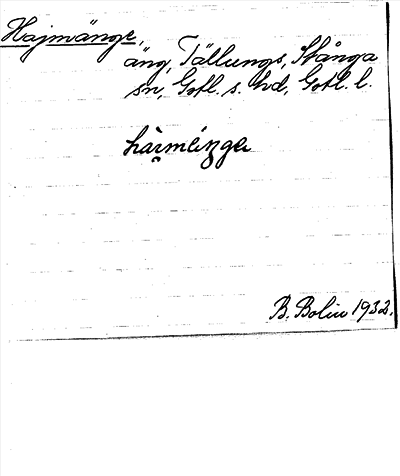 Hajmänge,
äng, Tällungs, Stånga
sn, Gotl. s. hd, Gotl. l.
B. Bolin 1932.